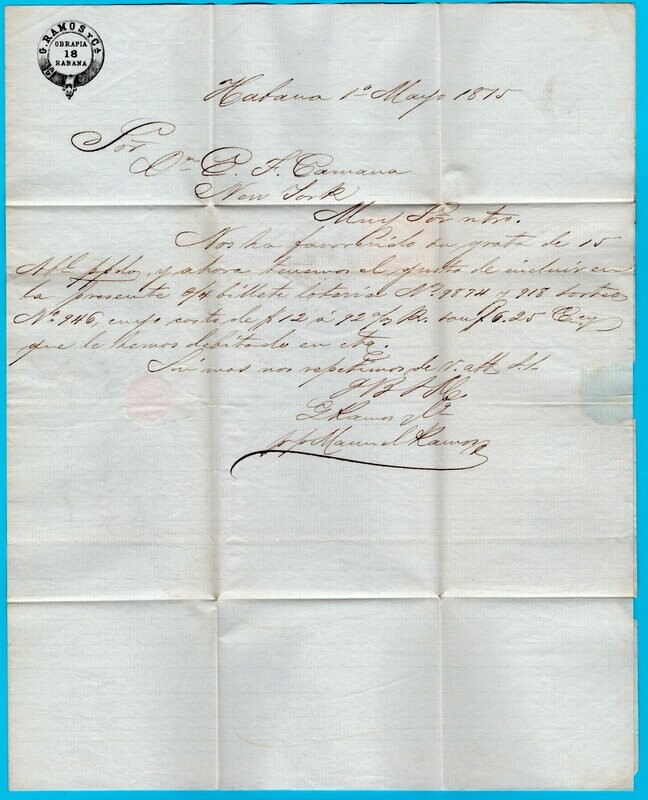 G. RAMOS Y Cª
OBRAPIA
18
HABANA
Habana 1º Mayo 1875
Sor
Dn P. F. Camana
New York
Muy Sor ntro.
Nos ha favorecido su grata de 15
Abl ppdo, y ahora tenemos el gusto de incluir en
la presente 2/4 billete loteria Nos 9874 y 918 sorteo
No 946, cuyo costo de $ 12 á 92 % son $ 6.25 Cey
que le hemos debitado en cta
Sin mas nos repetimos de v. att S.S.
G Ramos y Cª
p/p Manuel Ramos